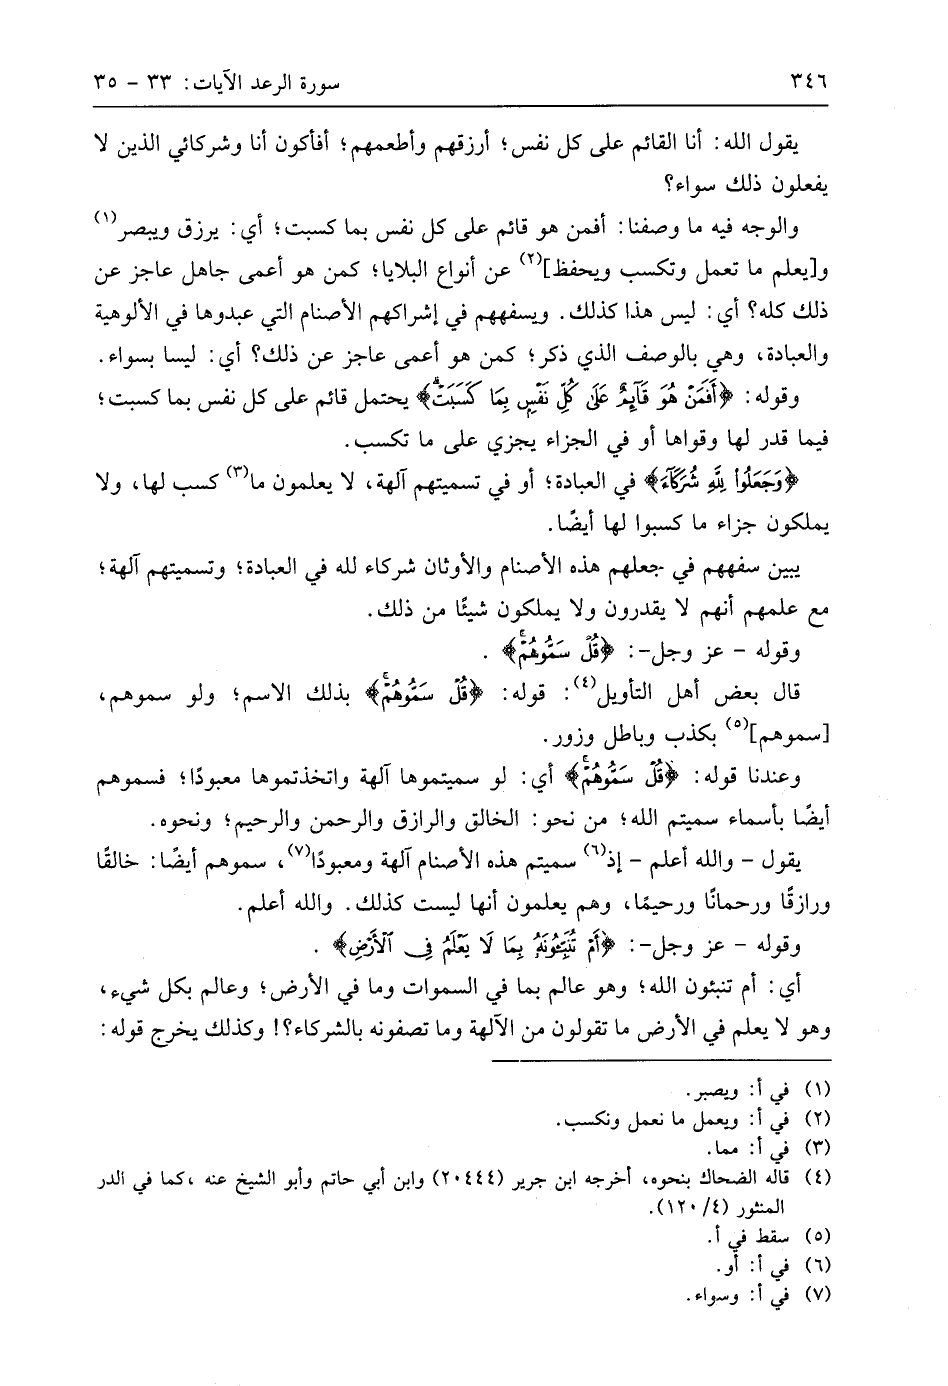 ٣٤٦
سورة الرعد الآيات: ٣٣ - ٣٥
يقول الله: أنا القائم على كل نفس؛ أرزقهم وأطعمهم؛ أفأكون أنا وشركائي الذين لا
يفعلون ذلك سواء؟
والوجه فيه ما وصفنا: أفمن هو قائم على كل نفس بما كسبت؛ أي: يرزق ويبصر(١)
و[يعلم ما تعمل وتكسب ويحفظ](٢) عن أنواع البلايا؛ كمن هو أعمى جاهل عاجز عن
ذلك كله؟ أي: ليس هذا كذلك. ويسفههم في إشراكهم الأصنام التي عبدوها في الألوهية
والعبادة، وهي بالوصف الذي ذكر؛ كمن هو أعمى عاجز عن ذلك؟ أي: ليسا بسواء.
وقوله: ﴿أَفَمَنْ هُوَ قَآئِمٌ عَلَىٰ كُلِّ نَفْسٍۭ بِمَا كَسَبَتْۗ﴾ يحتمل قائم على كل نفس بما كسبت؛
فيما قدر لها وقواها أو في الجزاء يجزي على ما تكسب.
﴿وَجَعَلُوا۟ لِلَّهِ شُرَكَآءَ﴾ في العبادة؛ أو في تسميتهم آلهة، لا يعلمون ما(٣) كسب لها، ولا
يملكون جزاء ما كسبوا لها أيضًا.
يبين سفههم في جعلهم هذه الأصنام والأوثان شركاء لله في العبادة؛ وتسميتهم آلهة؛
مع علمهم أنهم لا يقدرون ولا يملكون شيئًا من ذلك.
وقوله - عز وجل-: ﴿قُلْ سَمُّوهُمْۚ﴾ .
قال بعض أهل التأويل(٤): قوله: ﴿قُلْ سَمُّوهُمْۚ﴾ بذلك الاسم؛ ولو سموهم،
[سموهم](٥) بكذب وباطل وزور.
وعندنا قوله: ﴿قُلْ سَمُّوهُمْۚ﴾ أي: لو سميتموها آلهة واتخذتموها معبودًا؛ فسموهم
أيضًا بأسماء سميتم الله؛ من نحو: الخالق والرازق والرحمن والرحيم؛ ونحوه.
يقول - والله أعلم - إذ(٦) سميتم هذه الأصنام آلهة ومعبودًا(٧)، سموهم أيضًا: خالقًا
ورازقًا ورحمانًا ورحيمًا، وهم يعلمون أنها ليست كذلك. والله أعلم.
وقوله - عز وجل-: ﴿أَمْ تُنَبِّـُٔونَهُۥ بِمَا لَا يَعْلَمُ فِى ٱلْأَرْضِ﴾ .
أي: أم تنبئون الله؛ وهو عالم بما في السموات وما في الأرض؛ وعالم بكل شيء،
وهو لا يعلم في الأرض ما تقولون من الآلهة وما تصفونه بالشركاء؟! وكذلك يخرج قوله:
(١) في أ: ويصبر.
(٢) في أ: ويعمل ما نعمل ونكسب.
(٣) في أ: مما.
(٤) قاله الضحاك بنحوه، أخرجه ابن جرير (٢٠٤٤٤) وابن أبي حاتم وأبو الشيخ عنه ،كما في الدر
المنثور (٤/ ١٢٠).
(٥) سقط في أ.
(٦) في أ: أو.
(٧) في أ: وسواء.